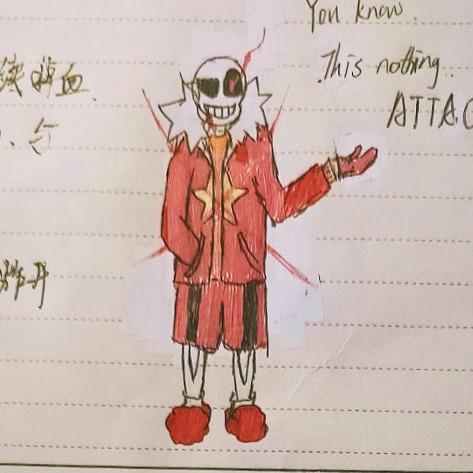 You know.
This nothing..
续掉血、
ATTAC
炸开